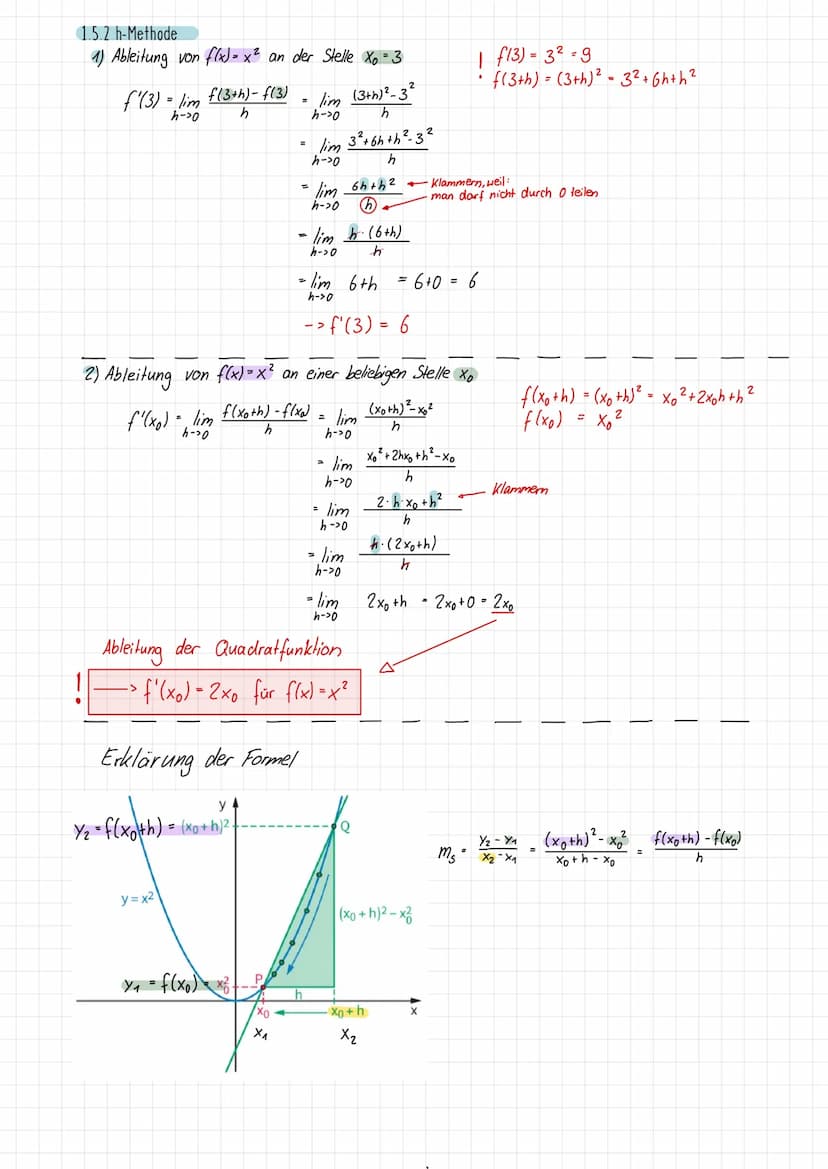 1.5.2 h-Methode
1) Ableitung von f(x) = x² an der Stelle x₀ = 3
! f(3) = 3² = 9
f(3+h) = (3+h)² = 3² + 6h + h²
f'(3) = lim h->0 f(3+h) - f(3) / h = lim h->0 (3+h)² - 3² / h
= lim h->0 3² + 6h + h² - 3² / h
= lim h->0 6h + h² / h
Klammern, weil:
man darf nicht durch 0 teilen
= lim h->0 h · (6+h) / h
= lim h->0 6+h = 6+0 = 6
-> f'(3) = 6
2) Ableitung von f(x) = x² an einer beliebigen Stelle x₀
f(x₀+h) = (x₀+h)² = x₀² + 2x₀h + h²
f(x₀) = x₀²
f'(x₀) = lim h->0 f(x₀+h) - f(x₀) / h = lim h->0 (x₀+h)² - x₀² / h
= lim h->0 x₀² + 2hx₀ + h² - x₀ / h
= lim h->0 2·h·x₀ + h² / h
Klammern
= lim h->0 h·(2x₀+h) / h
= lim h->0 2x₀+h = 2x₀+0 = 2x₀
Ableitung der Quadratfunktion
! -> f'(x₀) = 2x₀ für f(x) = x²
Erklärung der Formel
y
y₂ = f(x₀+h) = (x₀+h)²
Q
mₛ = y₂ - y₁ / x₂ - x₁ = (x₀+h)² - x₀² / x₀ + h - x₀ = f(x₀+h) - f(x₀) / h
y = x²
(x₀+h)² - x₀²
y₁ = f(x₀) = x₀²
P
h
x₀
x₀+h
x
x₁
x₂